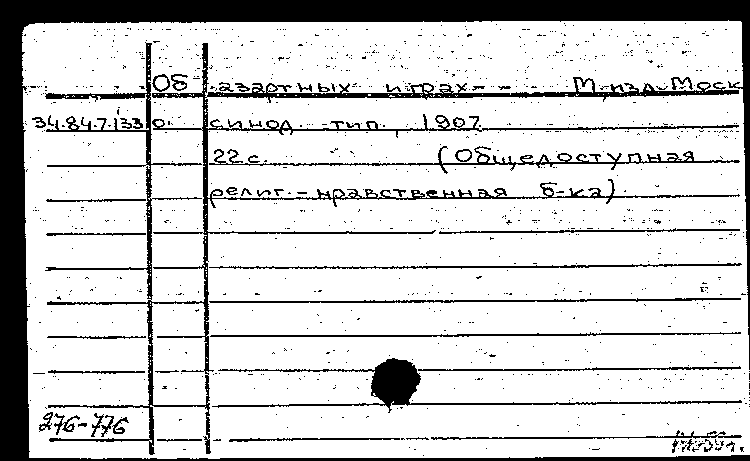 Об азартных играх - - М, изд. Моск
34.84.7.133 о. синод. тип., 1907
22 с. (Общедоступная
религ. - нравственная б-ка)
276-776